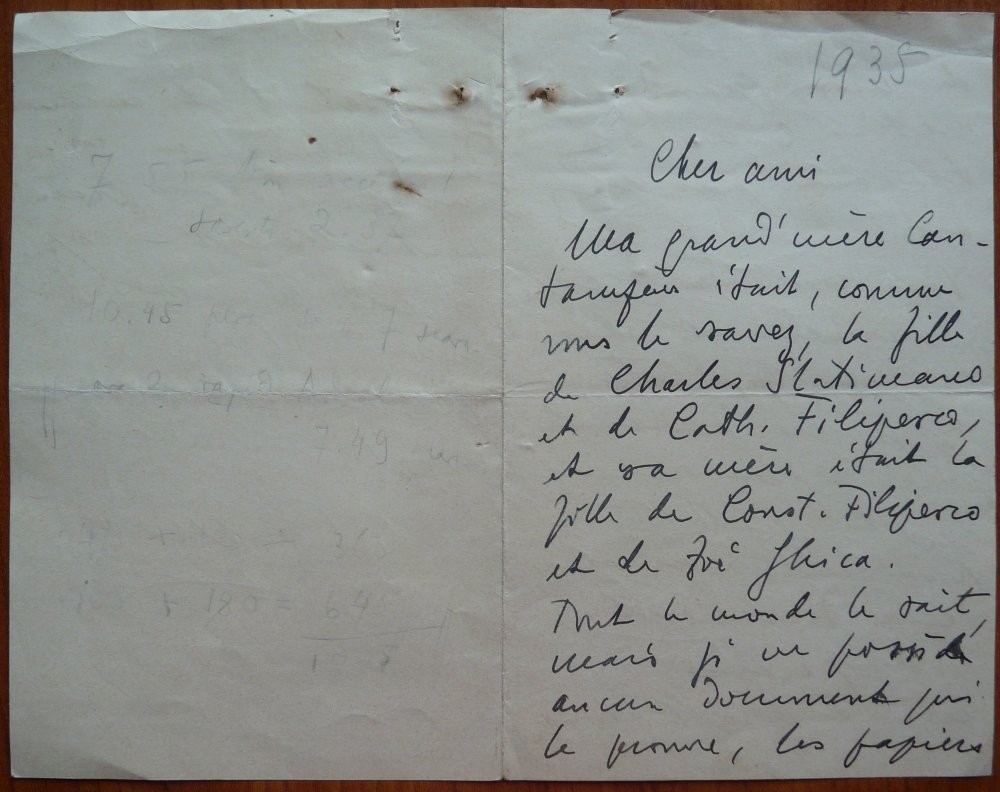 1935
Cher ami
Ma grand'mère Can-
tacuzène était, comme
vous le savez, la fille
de Charles Slatineano
et de Cath. Filipesco,
et sa mère était la
fille de Const. Filipesco
et de Zoé Ghica.
Tout le monde le sait,
mais je ne possède
aucun document qui
le prouve, les papiers
7
10.45 7
7.49
+ 190 = 64